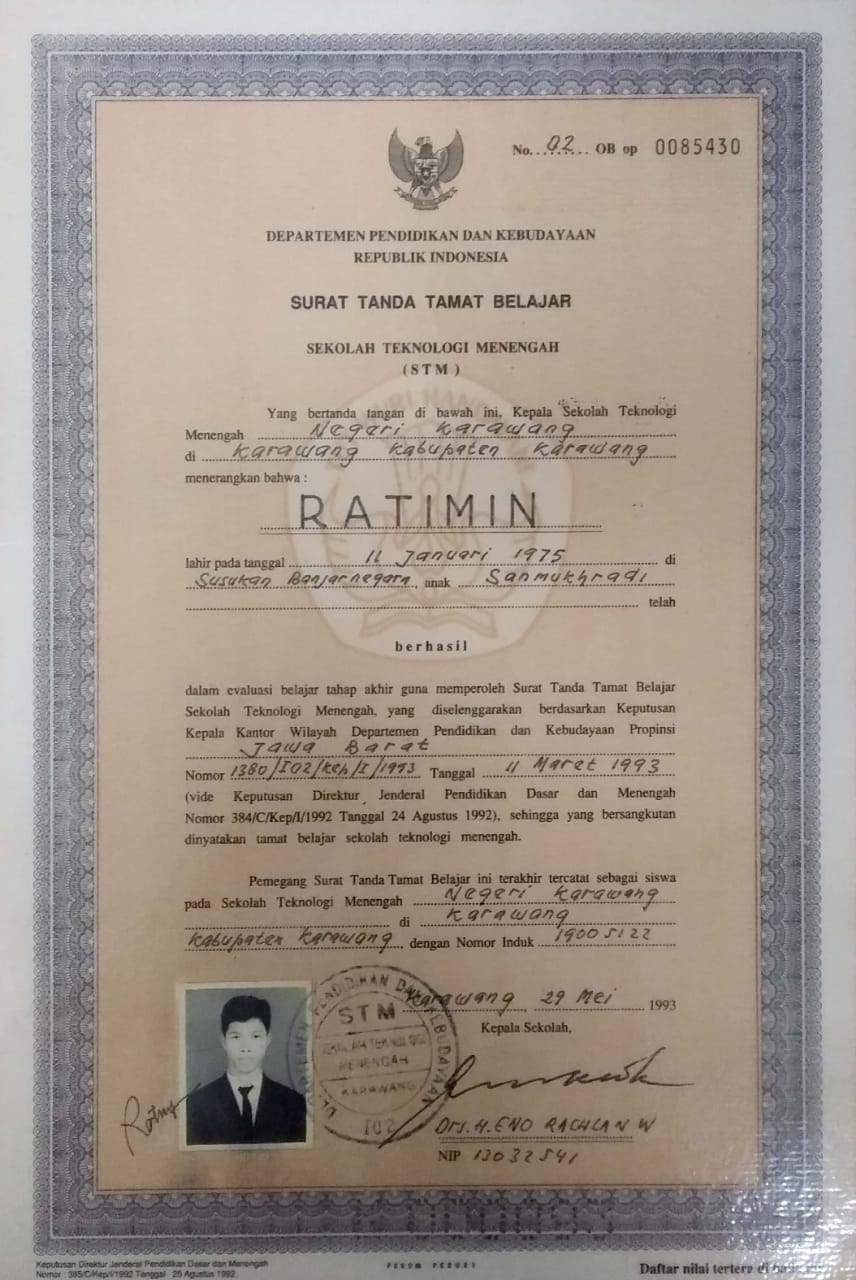 No. 02 OB op 0085430
DEPARTEMEN PENDIDIKAN DAN KEBUDAYAAN
REPUBLIK INDONESIA
SURAT TANDA TAMAT BELAJAR
SEKOLAH TEKNOLOGI MENENGAH
(STM)
Yang bertanda tangan di bawah ini, Kepala Sekolah Teknologi
Menengah Negeri Karawang
di Karawang Kabupaten Karawang
menerangkan bahwa :
RATIMIN
lahir pada tanggal 11 Januari 1975 di
Susukan Banjarnegara, anak Sanmukhradi
telah
berhasil
dalam evaluasi belajar tahap akhir guna memperoleh Surat Tanda Tamat Belajar
Sekolah Teknologi Menengah, yang diselenggarakan berdasarkan Keputusan
Kepala Kantor Wilayah Departemen Pendidikan dan Kebudayaan Propinsi
Jawa Barat
Nomor 1380/I02/Kep/I/1993 Tanggal 11 Maret 1993
(vide Keputusan Direktur Jenderal Pendidikan Dasar dan Menengah
Nomor 384/C/Kep/I/1992 Tanggal 24 Agustus 1992), sehingga yang bersangkutan
dinyatakan tamat belajar sekolah teknologi menengah.
Pemegang Surat Tanda Tamat Belajar ini terakhir tercatat sebagai siswa
pada Sekolah Teknologi Menengah Negeri Karawang
di Karawang
Kabupaten Karawang, dengan Nomor Induk 19005122
Karawang, 29 Mei 1993
Kepala Sekolah,
STM
SEKOLAH TEKNOLOGI
MENENGAH
KARAWANG
I02
Drs. H. ENO RACHLAN W
NIP 13032541
Keputusan Direktur Jenderal Pendidikan Dasar dan Menengah
Nomor : 385/C/Kep/I/1992 Tanggal 25 Agustus 1992
PERUM PERURI
Daftar nilai tertera di